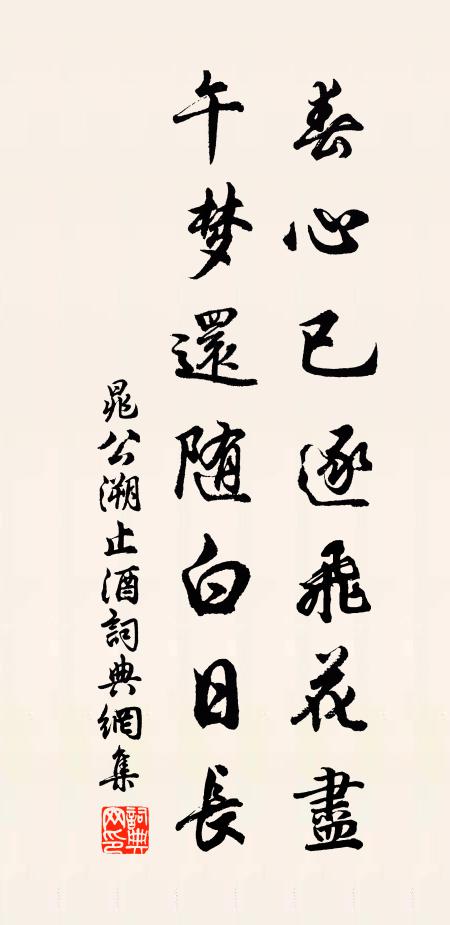 春心已逐飛花盡
午梦還随白日長
晁公溯止酒詞典網集
詞典網印